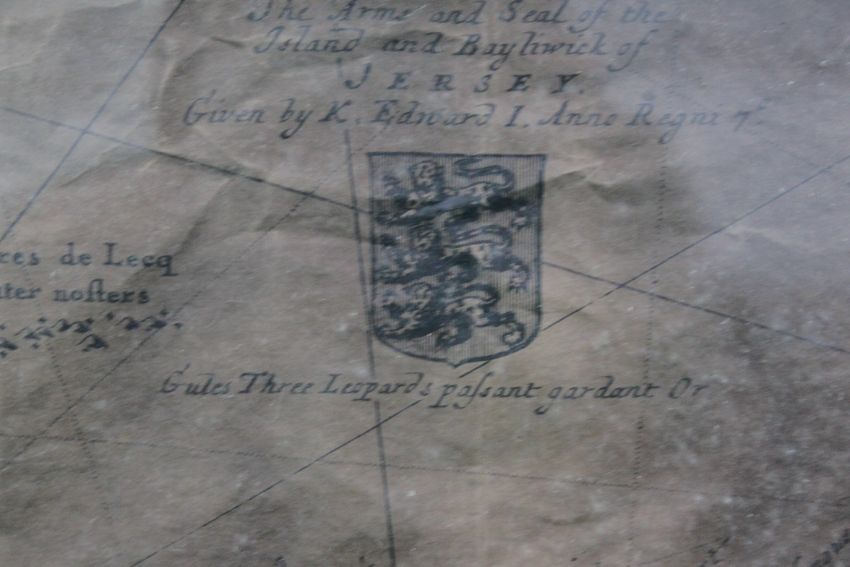 The Arms and Seal of the
Island and Bayliwick of
JERSEY.
Given by K. Edward I. Anno Regni 7º
res de Lecq
ter noſters
Gules Three Leopards paſsant gardant Or